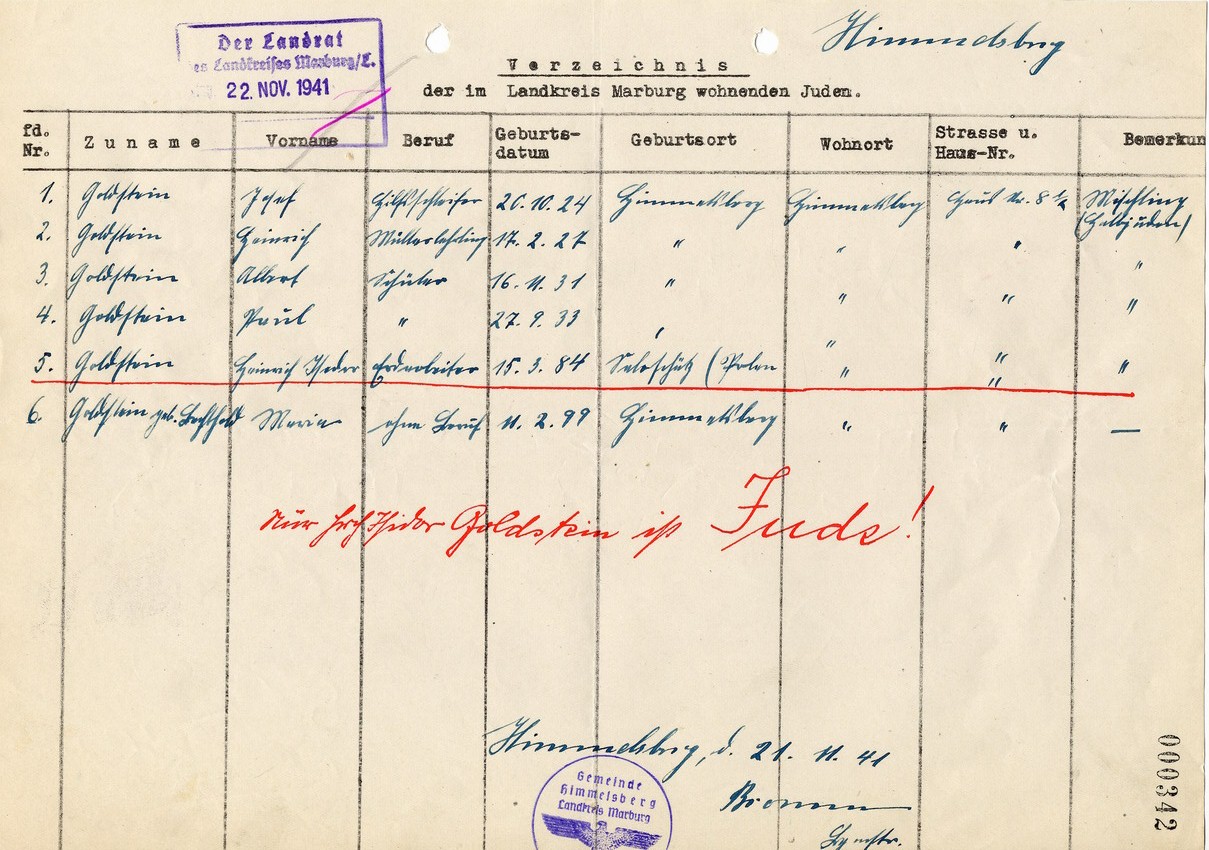 Himmelsberg
Der Landrat
des Landkreises Marburg/L.
22. NOV. 1941
Verzeichnis
der im Landkreis Marburg wohnenden Juden.
fd. Nr. Zuname Vorname Beruf Geburts-datum Geburtsort Wohnort Strasse u. Haus-Nr. Bemerkun
1. Goldstein Josef Hilfsschleifer 20.10.24 Himmelsberg Himmelsberg Haus Nr. 8 1/2 Mischling (Halbjuden)
2. Goldstein Heinrich Müllerlehrling 17.2.27 " " " "
3. Goldstein Albert Schüler 16.11.31 " " " "
4. Goldstein Paul " 27.9.33 " " " "
5. Goldstein Heinrich Isidor Erdarbeiter 15.3.84 (Polen " " "
6. Goldstein geb. Bechthold Maria ohne Beruf 11.2.99 Himmelsberg " " —
Nur Hch Isidor Goldstein ist Jude!
Himmelsberg, d. 21.11.41
Gemeinde
Himmelsberg
Landkreis Marburg
Bgmstr.
000342